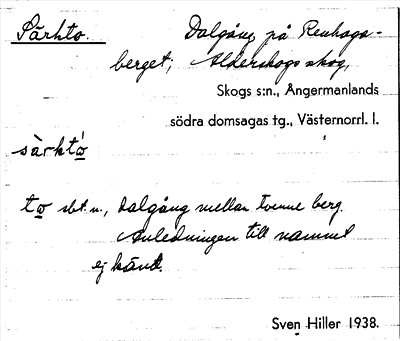 Särkto. Dalgång på Renhogs-
berget, Alderskogs skog,
Skogs s:n., Ångermanlands
södra domsagas tg., Västernorrl. l.
sàrktó
to sbt. n., dalgång mellan tvenne berg.
Anledningen till namnet
ej känd.
Sven Hiller 1938.